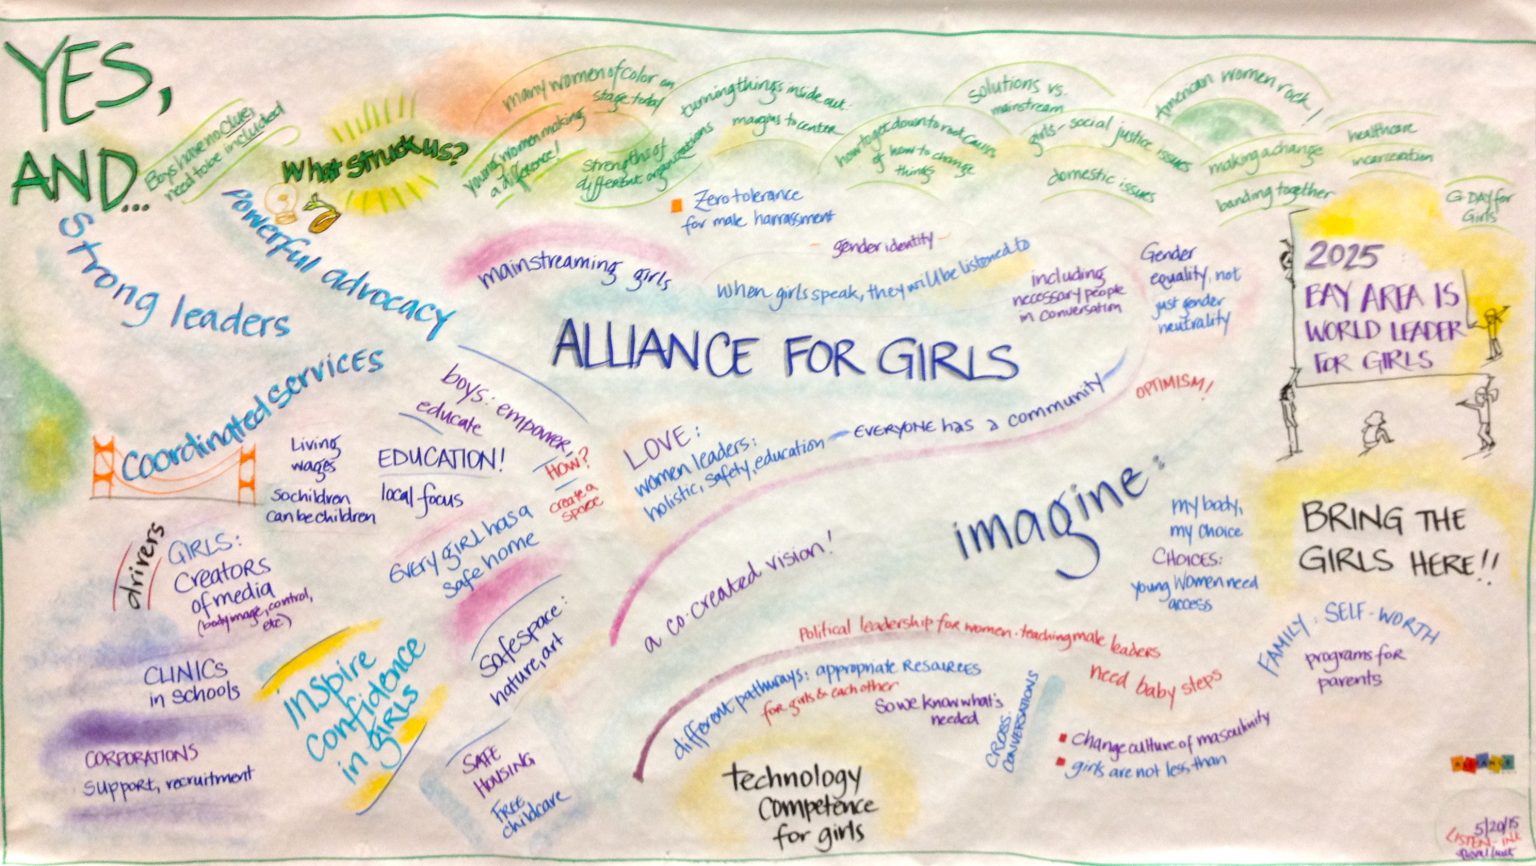 YES,
AND...
Boys have no clue,
need to be included
What struck us?
many women of color on
stage today
young women making
a difference!
strengths of
different organizations
turning things inside out.
margins to center
how to get down to root causes
of how to change
things
solutions vs.
mainstream
girls - social justice issues
domestic issues
American women rock!
making a change
banding together
healthcare
incarceration
G DAY for
Girls
Strong leaders
Powerful advocacy
Coordinated services
mainstreaming girls
Zero tolerance
for male harrassment
gender identity
when girls speak, they will be listened to
including
necessary people
in conversation
Gender
equality, not
just gender
neutrality
ALLIANCE FOR GIRLS
2025
BAY AREA IS
WORLD LEADER
FOR GIRLS
OPTIMISM!
boys: empower,
educate
HOW?
create a
space
Living
wages
so children
can be children
EDUCATION!
local focus
LOVE:
women leaders:
holistic, safety, education
EVERYONE has a community
Every girl has a
safe home
drivers
GIRLS:
Creators
of media
(body image, control,
etc.)
imagine:
my body,
my choice
CHOICES:
young women need
access
BRING THE
GIRLS HERE!!
a co-created vision!
Safe space:
nature, art
inspire
confidence
in girls
CLINICS
in schools
CORPORATIONS
support, recruitment
SAFE
HOUSING
FREE
childcare
Political leadership for women - teaching male leaders
need baby steps
different pathways: appropriate RESOURCES
for girls & each other
So we know what's
needed
CROSS-
CONVERSATIONS
technology
competence
for girls
change culture of masculinity
girls are not less than
FAMILY: SELF-WORTH
programs for
parents
ALLIANCE
5/20/15
LISTEN-INK